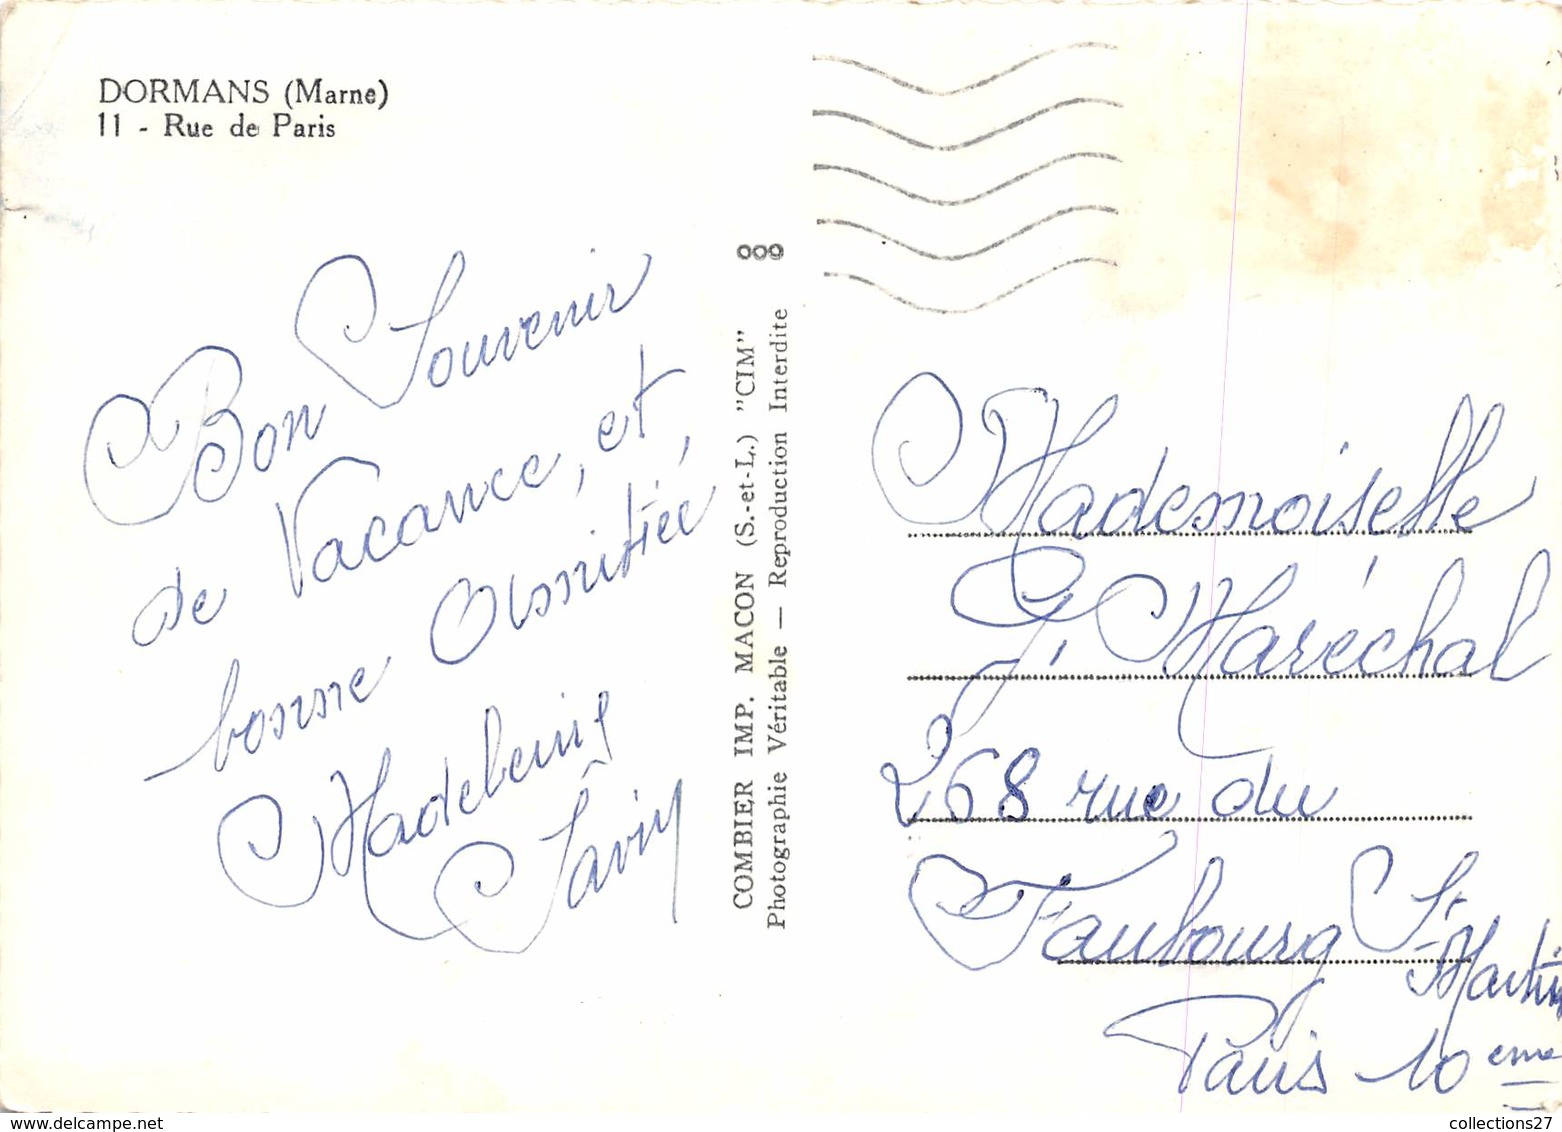 DORMANS (Marne)
11 - Rue de Paris
Bon Souvenir
de Vacance, et
bonne
COMBIER IMP. MACON (S.-et-L.) "CIM"
Photographie Véritable — Reproduction Interdite
Mademoiselle
G, Maréchal
268 rue du
Faubourg St
Martin
Paris 10 eme
delcampe.net
collections27